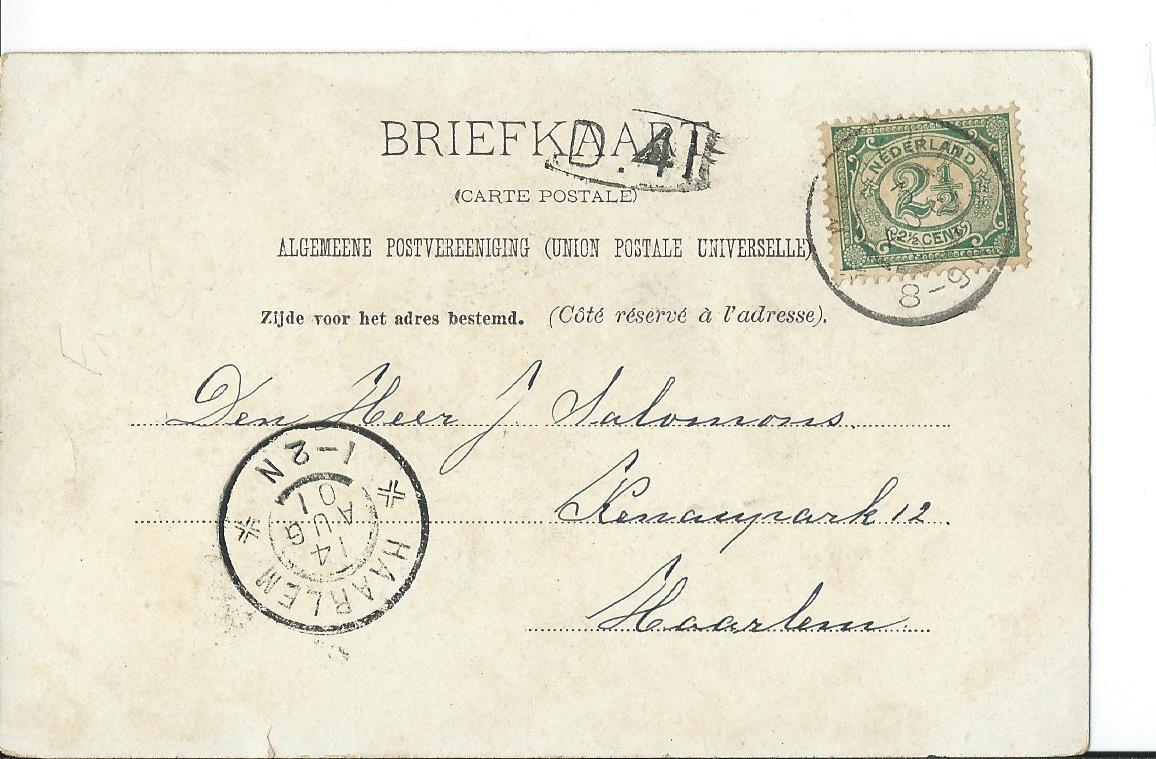 BRIEFKAART
D.41
(CARTE POSTALE)
NEDERLAND
2½
2½ CENT
8-9
ALGEMEENE POSTVEREENIGING (UNION POSTALE UNIVERSELLE)
Zijde voor het adres bestemd. (Côté réservé à l'adresse).
Den Heer J Salomons.
Kenaupark 12.
Haarlem
HAARLEM
14 AUG 01
1-2 N